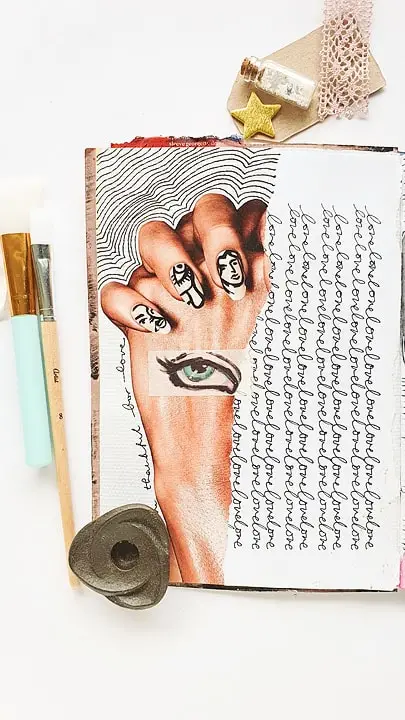 thankful for love
lovelovelovelovelovelovelovelove
lovelovelovelovelovelovelovelove
lovelovelovelovelovelovelovelove
lovelovelovelovelovelovelovelove
lovelovelovelovelovelovelovelove
lovelovelovelovelovelovelovelove
lovelovelovelovelovelovelovelove
8